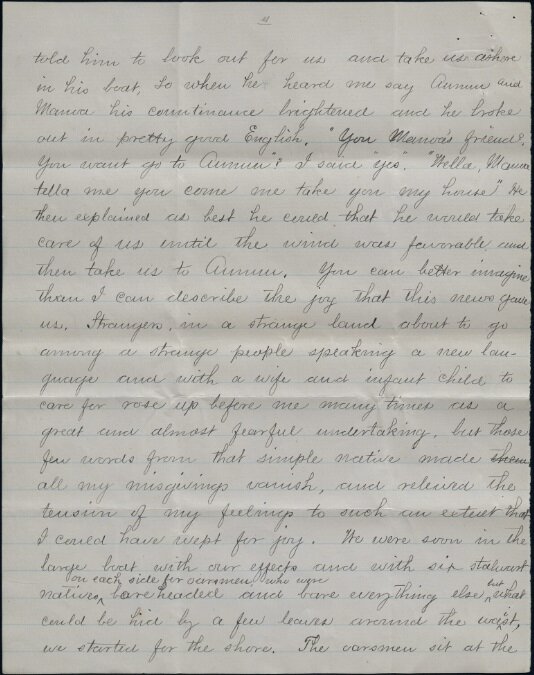 told him to look out for us and take us ashore
in his boat, So when he heard me say Aunuu and
Manoa his countinance brightened and he broke
out in pretty good English. "You Manoa's friend?,
You want go to Aunuu"? I said "yes". "Wella, Manoa
tella me you come me take you my house" He
then explained as best he could that he would take
care of us until the wind was favorable and
then take us to Aunuu. You can better imagine
than I can describe the joy that this news gave
us. Strangers, in a strange land about to go
among a strange people speaking a new lan-
guage and with a wife and infant child to
care for rose up before me many times as a
great and almost fearful undertaking, but those
few words from that simple native made them
all my misgivings vanish, and releived the
tension of my feelings to such an extent that
I could have wept for joy. We were soon in the
large boat with our effects and with six stalwart
on each side for oarsmen, who were
natives, bareheaded and bare everything else but what
could be hid by a few leaves around the waist,
we started for the shore. The oarsmen sit at the